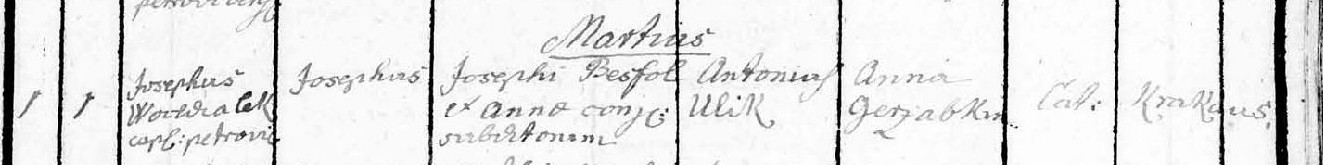 Martius
1 1 Josephus Josephus Josephi Besfol Antonius Anna
Wovdialek et Annæ conj: Ulik Gerzabkin Cat: Krakaus.
capl: petrovic subditorum